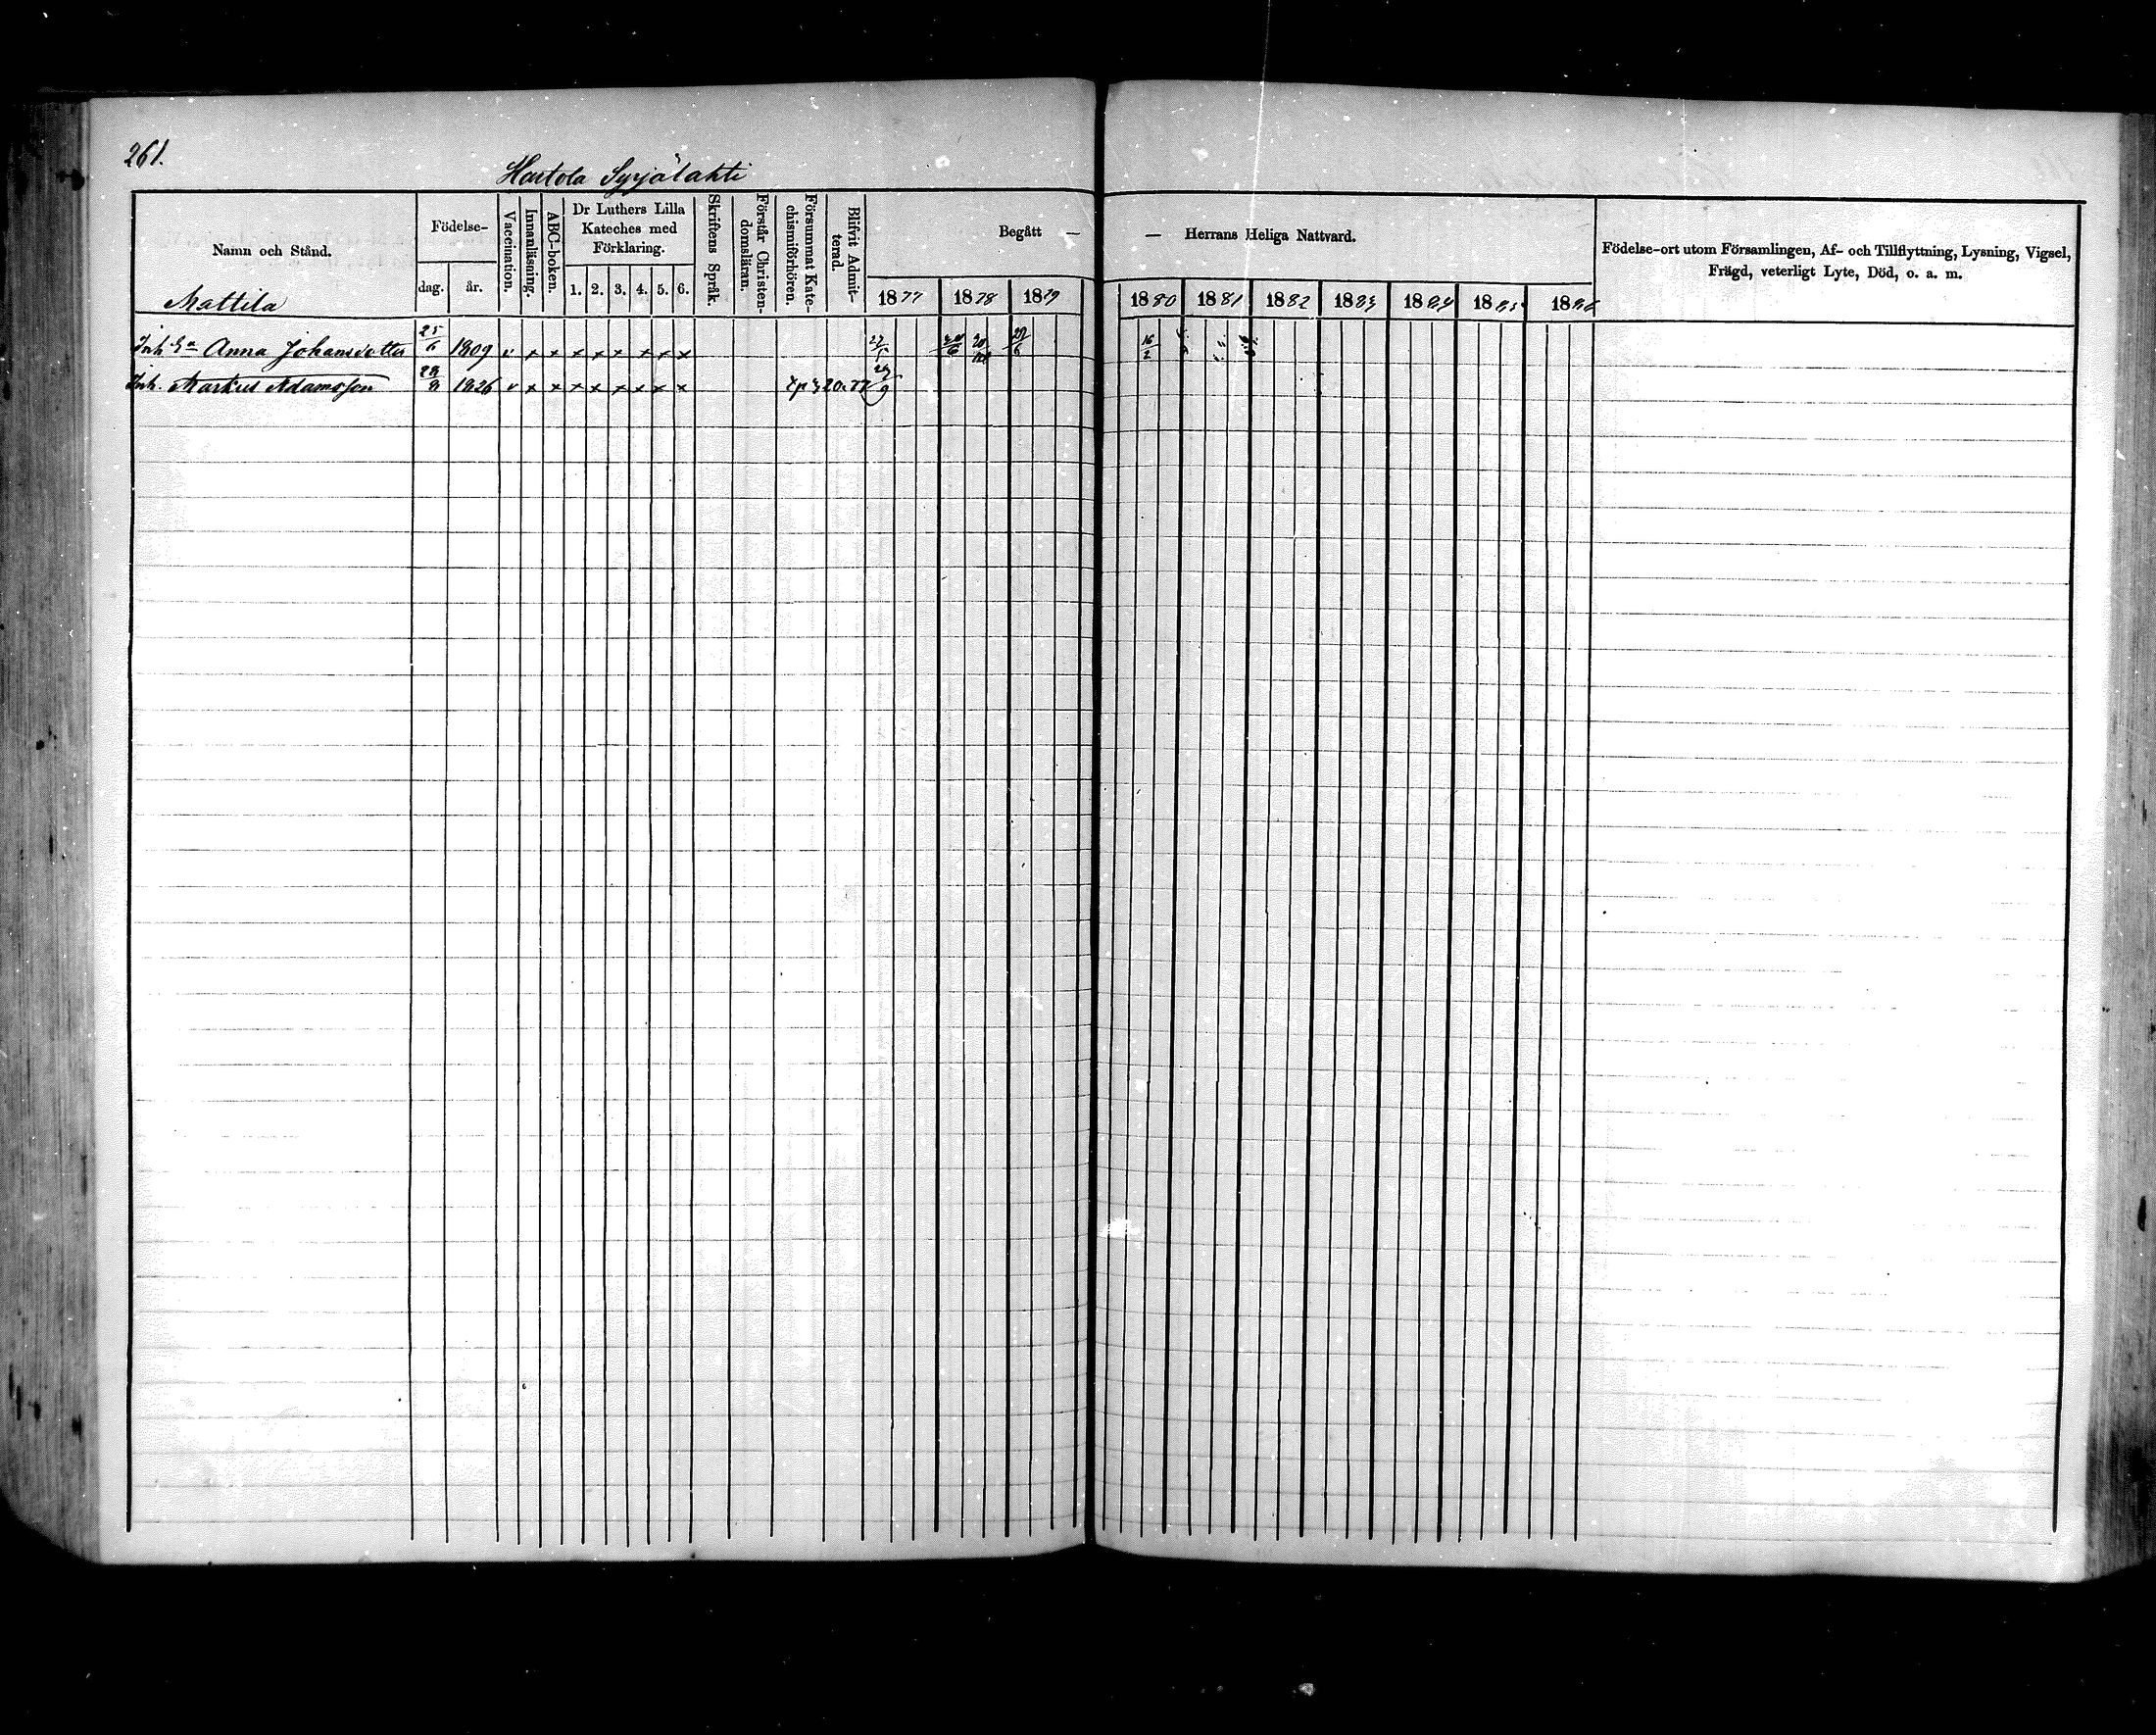 261.
Hartola Syrjälahti
Namn och Stånd.
Födelse-
dag. år.
Vaccination.
Innanläsning.
ABC-boken.
Dr Luthers Lilla
Kateches med
Förklaring.
1. 2. 3. 4. 5. 6.
Skriftens Språk.
Förstår Christen-
domsläran.
Försummat Kate-
chismiförhören.
Blifvit Admit-
terad.
Begått —
— Herrans Heliga Nattvard.
1877 1878 1879 1880 1881 1882 1883 1884 1885 1886
Födelse-ort utom Församlingen, Af- och Tillflyttning, Lysning, Vigsel,
Frägd, veterligt Lyte, Död, o. a. m.
Mattila
Inh. Anna Johansdotter 1809 v x x x x x x x x 20/6 16/2
Inh. Markus Adamsson 1826 v x x x x x x x x